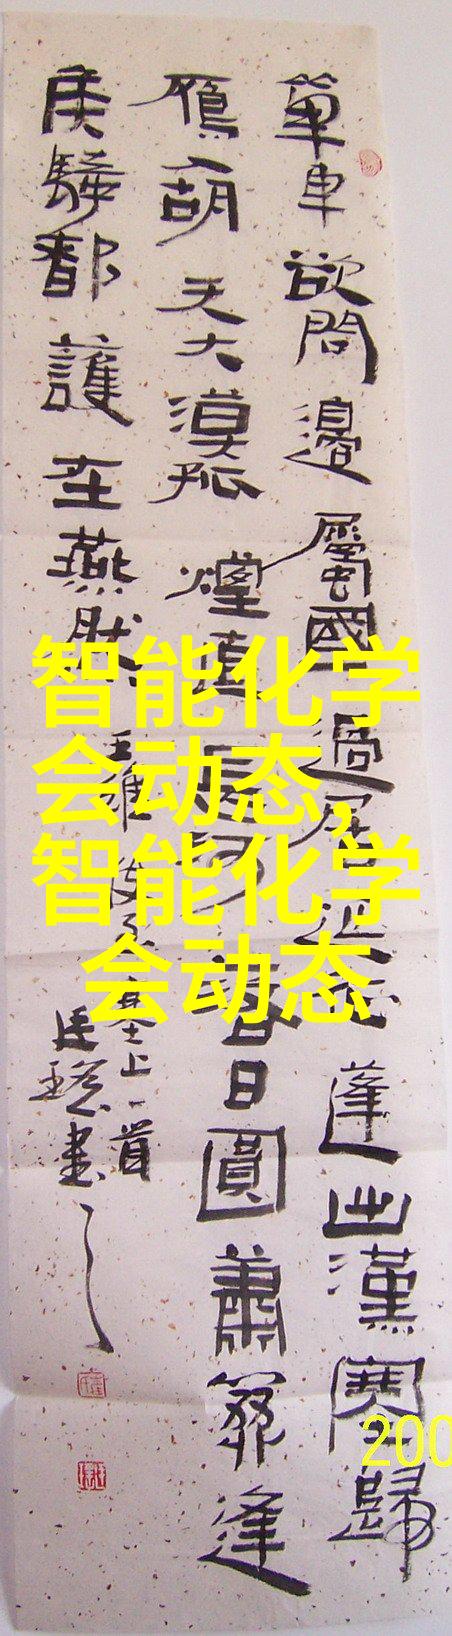 單車欲問邊屬國過居延征蓬出漢塞歸
鴈入胡天大漠孤煙直長河落日圓蕭關逢
候騎都護在燕然
王維使至塞上一首
書
智能化学
会动态,
智能化学
会动态
200